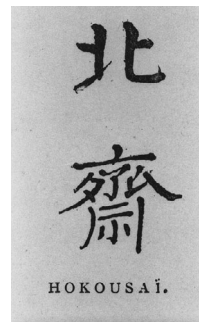 北
齋
HOKOUSAÏ.